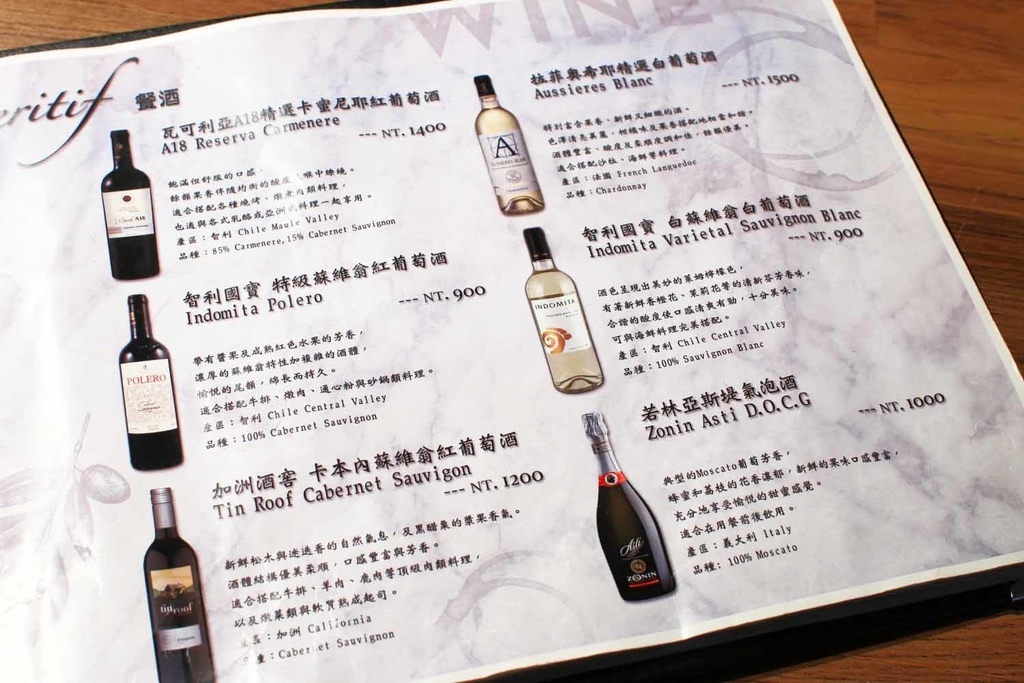 WINE
eritif 餐酒
瓦可利亞A18精選卡蜜尼耶紅葡萄酒
A18 Reserva Carmenere
--- NT. 1400
飽滿但舒服的口感，
餘韻果香伴隨均衡的酸度在喉中繚繞。
適合搭配各種燒烤、燉煮肉類料理，
也適與各式乳酪或亞洲式料理一起享用。
產區：智利 Chile Maule Valley
品種：85% Carmenere,15% Cabernet Sauvignon
智利國寶 特級蘇維翁紅葡萄酒
Indomita Polero
--- NT. 900
帶有醬果及成熟紅色水果的芳香，
濃厚的蘇維翁特性加複雜的酒體，
愉悅的尾韻，綿長而持久。
適合搭配牛排、燉肉、通心粉與砂鍋類料理。
產區：智利 Chile Central Valley
品種：100% Cabernet Sauvignon
POLERO
加洲酒窖 卡本內蘇維翁紅葡萄酒
Tin Roof Cabernet Sauvigon
--- NT. 1200
新鮮松木與迷迭香的自然氣息，及黑醋栗的漿果香氣。
酒體結構優美柔順，口感豐富與芳香。
適合搭配牛排、羊肉、鹿肉等頂級肉類料理，
以及燉菜類與軟質熟成起司。
產區：加洲 California
品種：Cabernet Sauvignon
tin roof
拉菲奧希耶精選白葡萄酒
Aussieres Blanc
--- NT. 1500
特別富含果香、新鮮又細緻的酒。
色澤清亮美麗，柑橘味及果香搭配地相當和諧。
酒體豐富、酸度及柔順度調和佳，餘韻優美。
適合搭配沙拉、海鮮等料理。
產區：法國 French Languedoc
品種：Chardonnay
A
智利國寶 白蘇維翁白葡萄酒
Indomita Varietal Sauvignon Blanc
--- NT. 900
酒色呈現出美妙的萊姆檸檬色，
有著新鮮香橙花、茉莉花等的清新芬芳香味，
合諧的酸度使口感清爽有勁，十分美味。
可與海鮮料理完美搭配。
產區：智利 Chile Central Valley
品種：100% Sauvignon Blanc
INDOMITA
若林亞斯堤氣泡酒
Zonin Asti D.O.C.G
--- NT. 1000
典型的Moscato葡萄芳香，
蜂蜜和荔枝的花香濃郁，新鮮的果味口感豐富，
充分地享受愉悅的甜蜜感覺。
適合在用餐前後飲用。
產區：義大利 Italy
品種：100% Moscato
Asti
ZONIN